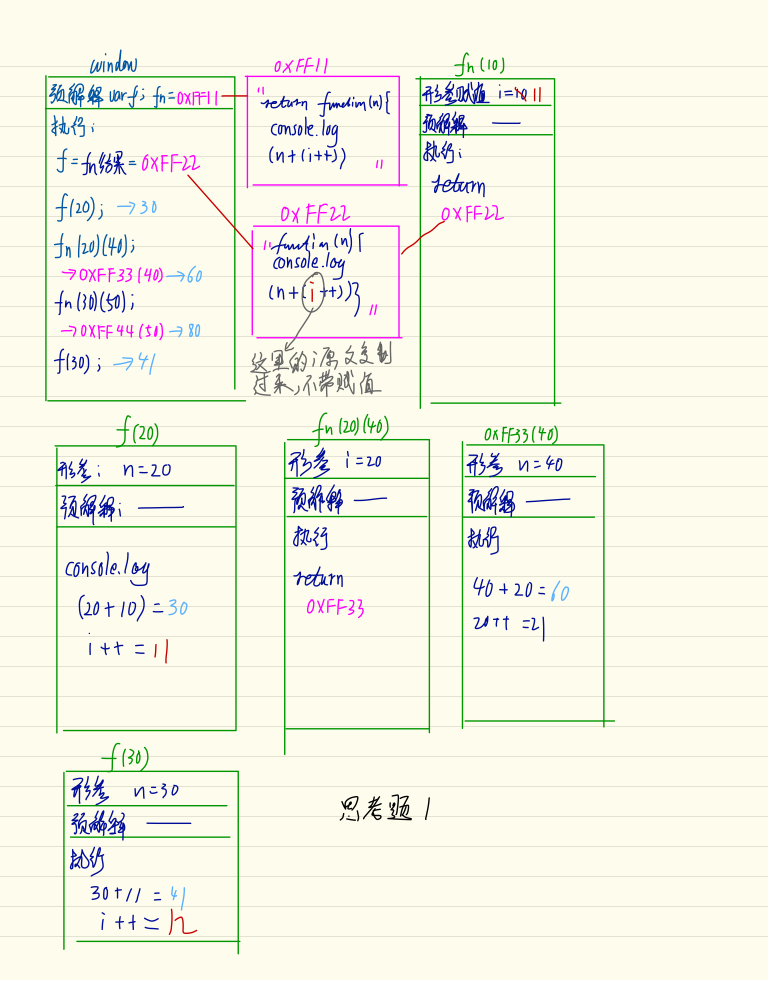 window
预解释 var f; fn=0XFF11
执行;
f=fn结果=0XFF22
f(20); →30
fn(20)(40);
→0XFF33(40)→60
fn(30)(50);
→0XFF44(50)→80
f(30); →41
0XFF11
"return function(n){
console.log
(n+(i++)) "
0XFF22
"function(n){
console.log
(n+(i++))} "
这里的i原文复制
过来,不带赋值
fn(10)
形参赋值 i=10 11
预解释 ——
执行:
return
0XFF22
f(20)
形参: n=20
预解释: ——
console.log
(20+10)=30
i++ = 11
fn(20)(40)
形参 i=20
预解释 ——
执行
return
0XFF33
0XFF33(40)
形参 n=40
预解释 ——
执行
40+20=60
20++ =21
f(30)
形参 n=30
预解释 ——
执行
30+11 =41
i++=12
思考题1